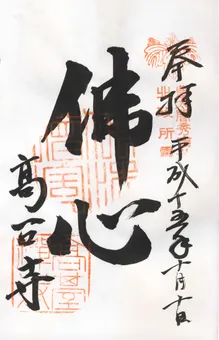 奉拝
平成十五年十月十日
佛心
高台寺